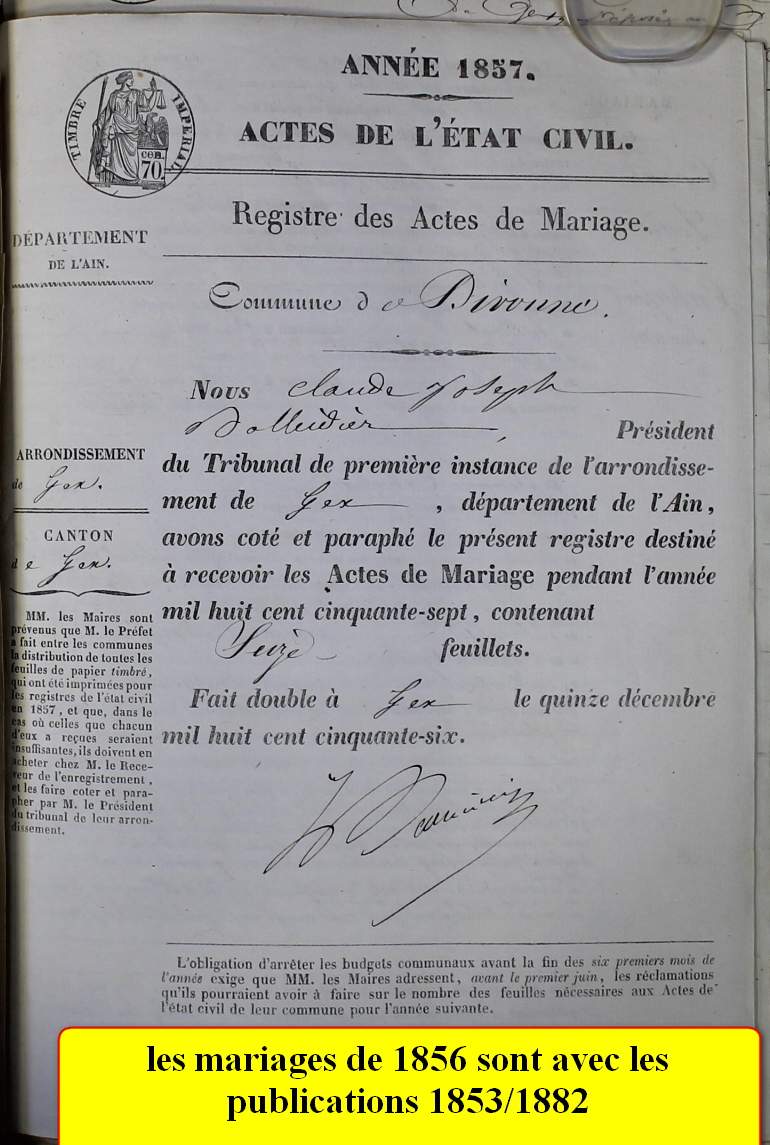 ANNÉE 1857.
ACTES DE L'ÉTAT CIVIL.
TIMBRE IMPERIAL
CEN.
70.
Registre des Actes de Mariage.
DÉPARTEMENT
DE L'AIN.
Commune de Divonne.
Nous Claude Joseph
Président
du Tribunal de première instance de l'arrondisse-
ment de Gex, département de l'Ain,
avons coté et paraphé le présent registre destiné
à recevoir les Actes de Mariage pendant l'année
mil huit cent cinquante-sept, contenant
Seize feuillets.
Fait double à Gex le quinze décembre
mil huit cent cinquante-six.
ARRONDISSEMENT
de Gex.
CANTON
de Gex.
MM. les Maires sont
prévenus que M. le Préfet
a fait entre les communes
la distribution de toutes les
feuilles de papier timbré,
qui ont été imprimées pour
les registres de l'état civil
en 1857, et que, dans le
cas où celles que chacun
d'eux a reçues seraient
insuffisantes, ils doivent en
acheter chez M. le Rece-
veur de l'enregistrement,
et les faire coter et para-
pher par M. le Président
du tribunal de leur arron-
dissement.
L'obligation d'arrêter les budgets communaux avant la fin des six premiers mois de
l'année exige que MM. les Maires adressent, avant le premier juin, les réclamations
qu'ils pourraient avoir à faire sur le nombre des feuilles nécessaires aux Actes de
l'état civil de leur commune pour l'année suivante.
les mariages de 1856 sont avec les
publications 1853/1882